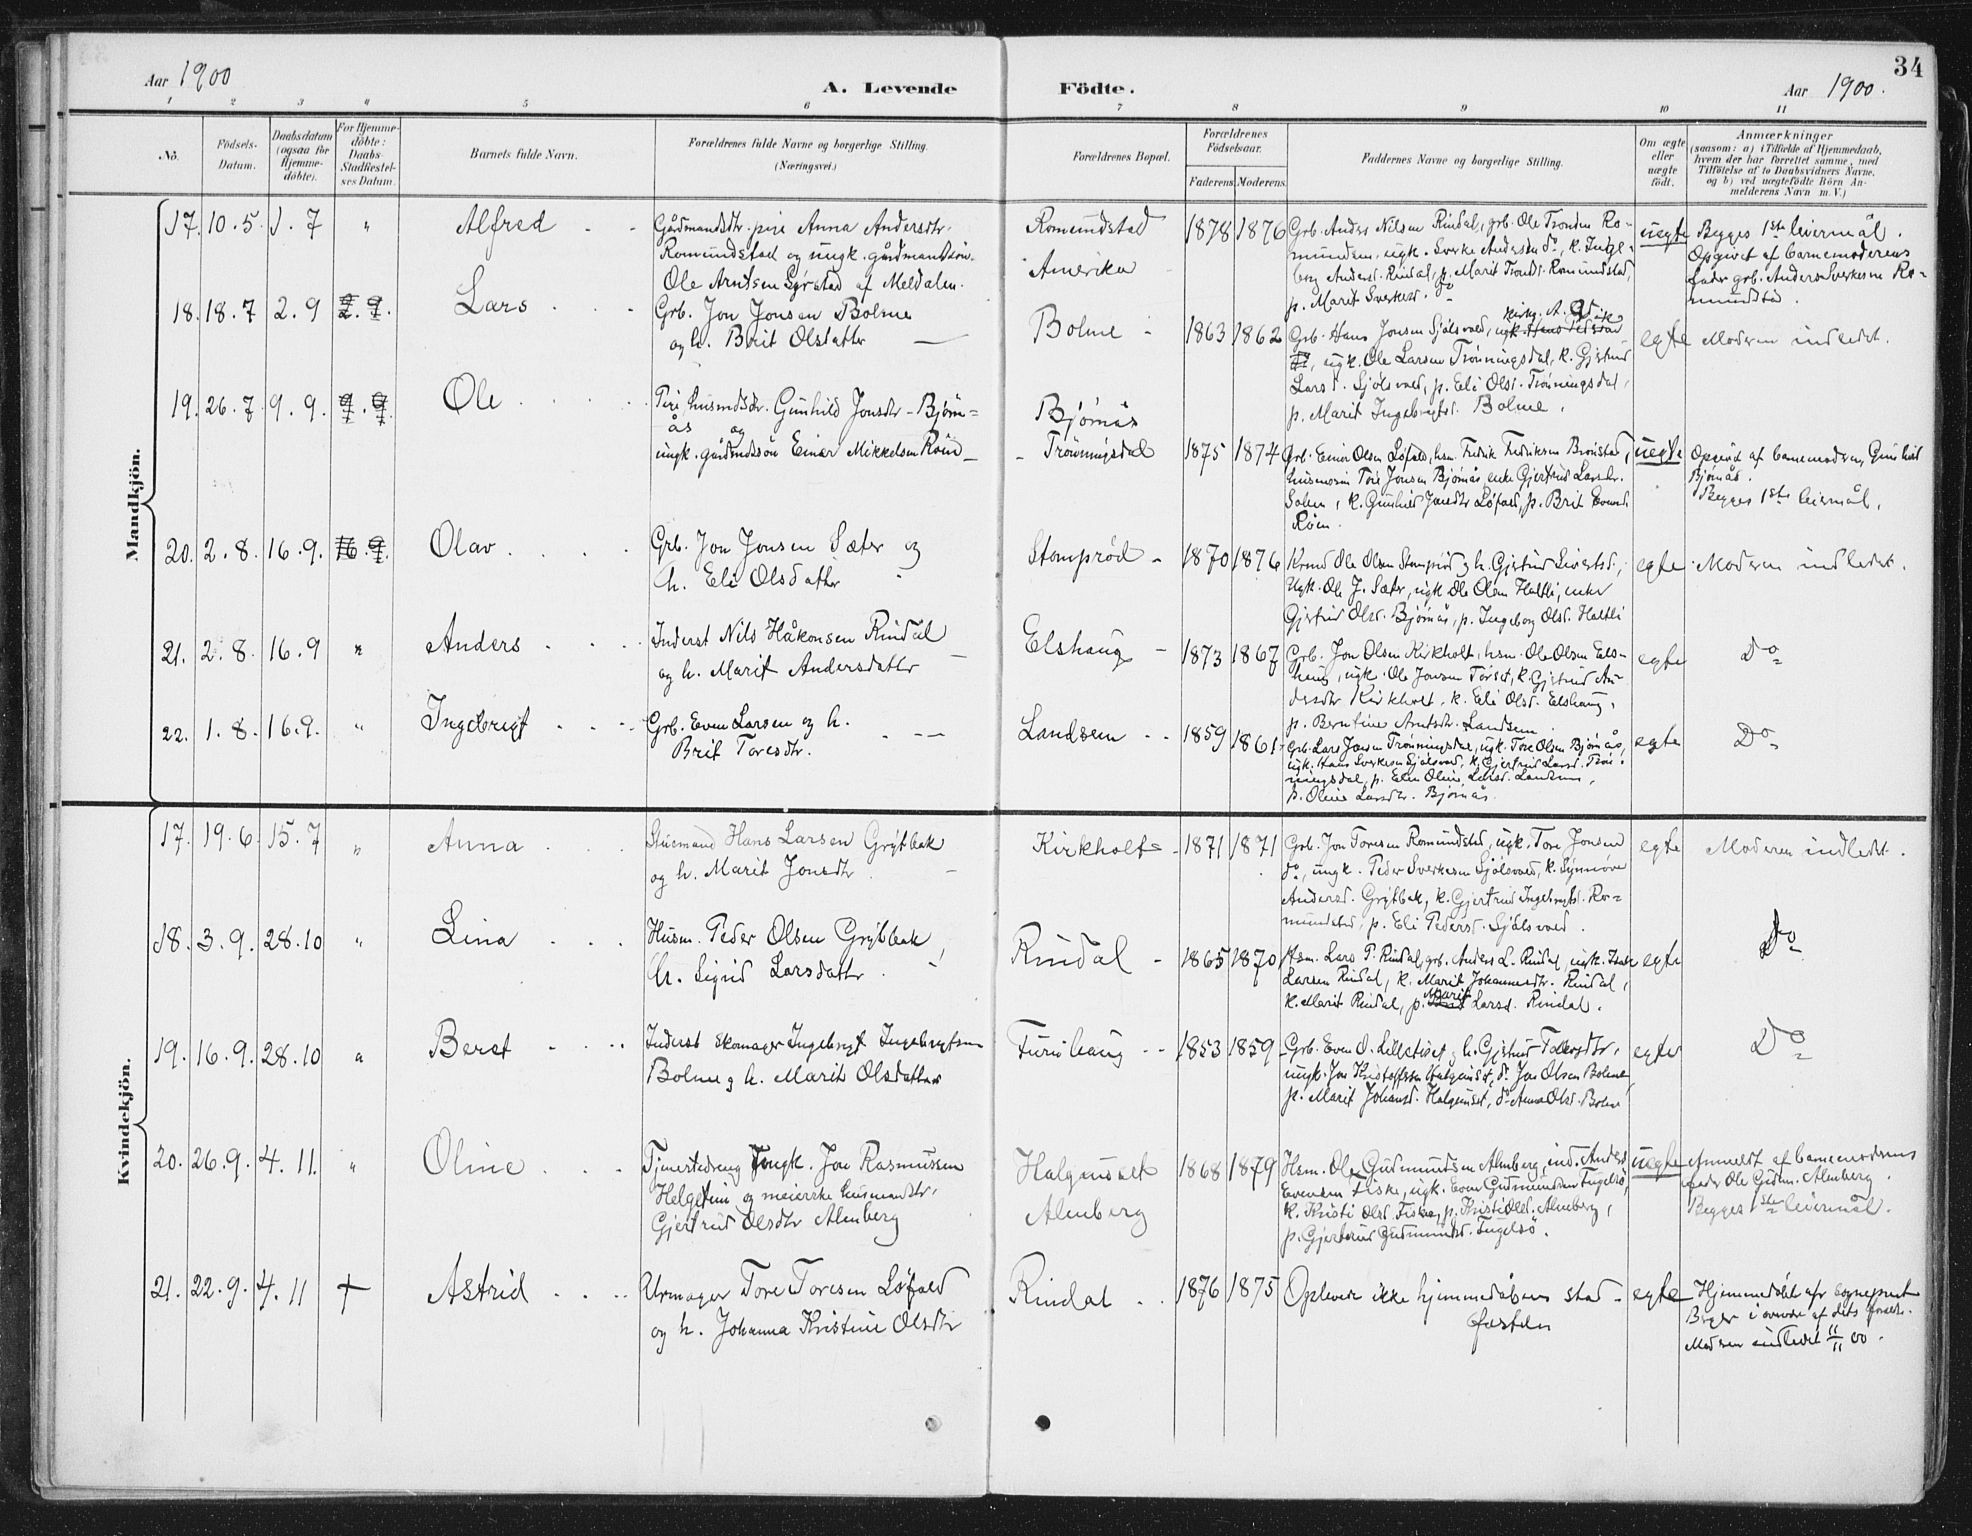 34
Aar 1900
A. Levende Födte.
Aar 1900.
1 2 3 4 5 6 7 8 9 10 11
No.
Födsels-Datum.
Daabsdatum (ogsaa for Hjemme-döbte).
For Hjemme-döbte: Daabs-Stadfæstel-ses Datum.
Barnets fulde Navn.
Forældrenes fulde Navne og borgerlige Stilling. (Næringsvei.)
Forældrenes Bopæl.
Forældrenes Födselsaar.
Faderens. Moderens.
Faddernes Navne og borgerlige Stilling.
Om ægte eller uægte födt.
Anmærkninger (saasom: a) i Tilfælde af Hjemmedaab, hvem der har forrettet samme, med Tilföielse af to Daabsvidners Navne, og b) ved uægtefödte Börn An-melderens Navn m. V.)
Mandkjön.
17. 10.5 1.7 " Alfred
Gårdmandsdtr. pige Anna Andersdtr.
Romundstad og ungk. gårdmandssön
Ole Arntsen Syrstad af Meldalen.
Romundstad
Amerika
1878 1876
Grb. Anders Nilsen Rindal, grb. Ole Tronsen Ro-
mundstad, ungk. Sverke Andersen do, k. Ingebor
Anders. Rindal, p. Marit Tronds. Romundstad,
p. Marit Sverkesd. do
uegte
Begges 1ste leiermål.
Opgivet af barnemoderens
fader grb. Anders Sverkesen Ro-
mundstad.
18. 18.7 2.9 2.9. Lars
Grb. Jon Jonsen Bolme
og h. Brit Olsdatter
Bolme
1863 1862
Grb. Hans Jonsen Sjölsvold,
ungk. Ole Larsen Trönningsdal, k. Gjertrud
Larsd. Sjölsvold, p. Eli Olsd. Trönningsdal,
p. Marit Ingebrigtsd. Bolme.
egte
Moderen indledet.
19. 26.7 9.9. 9.9. Ole
Pige, husmdsdtr. Gunhild Jonsdtr. Bjørn-
ås og
ungk. gårdmdssön Einar Mikkelsen Röen
Bjørnås
Trönningsdal
1875 1874
Grb. Einar Olsen Løfald, hsm. Fredrik Fredriksen Brönstad,
husmosön Tore Jonsen Bjørnås, enke Gjertrud Larsdtr.
Solem, k. Gunhild Jonsdtr. Løfald, p. Brit Evensd.
Röen.
uegte
Opgivet af barnemoderen, Gunhild
Bjørnås.
Begges 1ste leiermål.
20. 2.8. 16.9. 16.9. Olav
Grb. Jon Jonsen Sæter og
h. Eli Olsdatter
Stomprød
1870 1876
Krmd Ole Olsen Stomprød og h. Gjertrud Sivertsd.,
Ungk. Ole J. Sæter, ungk. Ole Olsen Haltli, enke
Gjertrud Olsd. Bjørnås, p. Ingeborg Olsd. Haltli
egte
Moderen indledet.
21. 2.8. 16.9 " Anders
Inderst Nils Håkonsen Rindal
og h. Marit Andersdatter
Elshaug
1873 1867
Grb. Jon Olsen Kirkholt, hsm. Ole Olsen Els-
haug, ungk. Ole Jonsen Torset, k. Gjertrud An-
dersdtr Kirkholt, k. Eli Olsd. Elshaug,
p. Berntine Arntsdtr. Landsem.
egte
Do
22. 1.8. 16.9. " Ingebrigt
Grb. Even Larsen og h.
Brit Toresdtr.
Landsem
1859 1861
Grb. Lars Jonsen Trönningsdal, ungk. Tore Olsen Bjørnås,
ungk. Hans Sverkesen Sjølsvold, k. Gjertrud Larsd. Trön-
ningsdal, p. Elen Oline Larsd. Landsem,
p. Oline Larsdtr. Bjørnås.
egte
Do
Kvindekjön.
17. 19.6 15.7 " Anna
Stuemand Hans Larsen Grytbak
og h. Marit Jonsdtr
Kirkholt
1871 1871
Grb. Jon Toresen Romundstad, ungk. Tore Jonsen
do, ungk. Peder Sverkesen Sjölsvold, k. Synnöve
Andersd. Grytbak, k. Gjertrud Ingebrigtsd. Ro-
mundstad, p. Eli Pedersd. Sjölsvold.
egte
Moderen indledet.
18. 3.9. 28.10 " Lina
Husm. Peder Olsen Grytbak,
h. Sigrid Larsdatter
Rindal
1865 1870
Hsm. Lars P. Rindal, grb. Anders L. Rindal, ungk. Isak
Larsen Rindal, k. Marit Johannesdtr. Rindal,
k. Marit Rindal, p. Marit Larsd. Rindal.
egte
Do
19. 16.9. 28.10 " Beret
Inderst skomager Ingebrigt Ingebrigtsen
Bolme og h. Marit Olsdatter
Furuhaug
1853 1859
Grb. Even O. Lilletörset og h. Gjertrud Toresdtr,
ungk. Jon Kristoffersen Halgunset, do Jon Olsen Bolme,
p. Marit Johansd. Halgunset, do Anna Olsd. Bolme
egte
Do
20. 26.9. 4.11. " Oline
Tjenestedreng Ungk. Jon Rasmussen
Helgetun og meierske husmandsdtr.
Gjertrud Olsdtr Almberg
Halgunset
Almberg
1868 1879
Hsm. Ole Gudmundsen Almberg, ind. Anders
Evensen Fiske, ungk. Even Gudmundsen Fugelsö,
k. Kristi Olsd. Fiske, p. Kristi Olsd. Almberg,
p. Gjertrud Gudmundsd. Fugelsö.
uegte
Anmeldt af barnemoderens
fader Ole Gudm. Almberg.
Begges 1ste leiermål.
21. 22.9. 4.11 † Astrid
Urmager Tore Toresen Løfald
og h. Johanna Kristine Olsdtr
Rindal
1876 1875
Oplevede ikke hjemmedåbens stad-
fæstelse
egte
Hjemmedöbt af sogneprest
Böger i overvær af dets foreldr.
Moderen indledet 11/11 00.